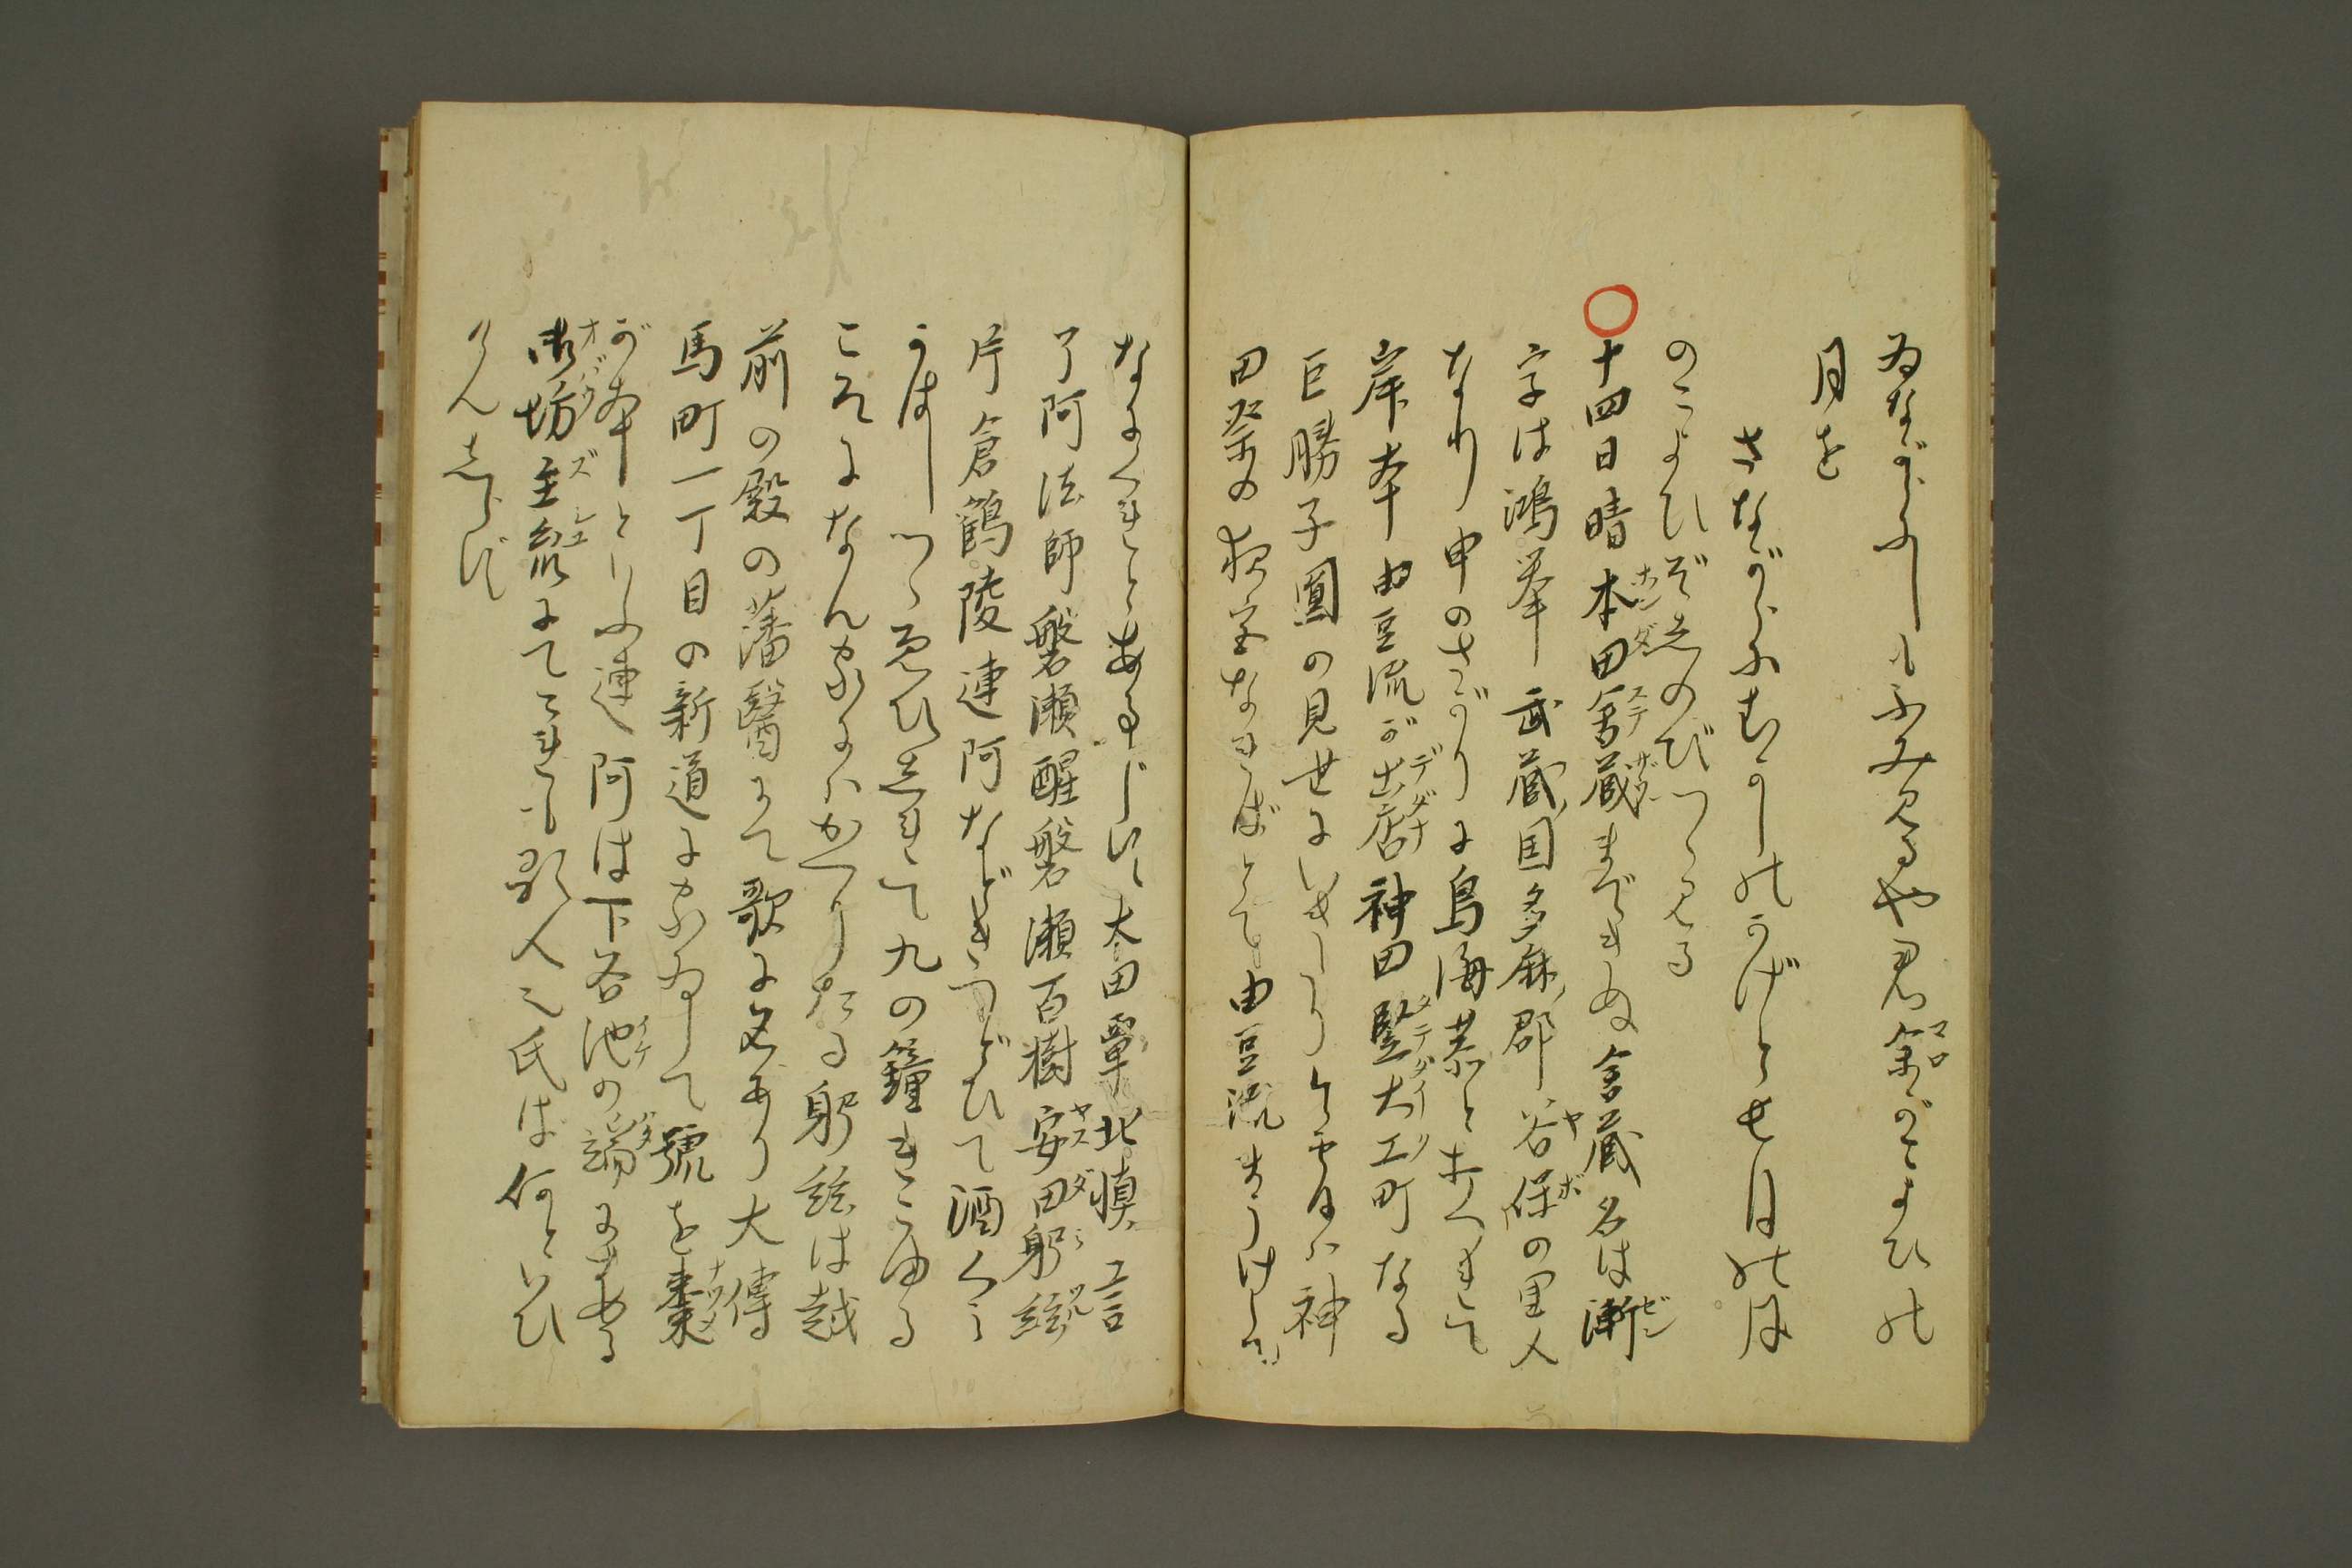 ゐながらふしもふみ見るや君麻呂がこよひの
月を
さながらふむかしのかげとせ月の月
のこよひぞしのびつゝ見る
十四日晴本田舎蔵まできぬ舎蔵名は漸
字は鴻挙武蔵ノ国多麻ノ郡谷保の里人
なり申のさがりに鳥海恭と共くれて
岸本由豆流が出店神田竪大工町なる
巨勝子圓の見世にいきたりけふは神
田祭の夜宮なればとて由豆流まうけして
なにくれとあるじに太田覃北慎言
了阿法師磐瀬醒磐瀬百樹安田躬弦
片倉鶴陵連阿などきつどひて酒くみ
かはしつゝゑひしれて九の鐘きこゆる
ころになん家にはかへりたる躬弦は越
前の殿の藩醫にて歌に名あり大傳
馬町一丁目の新道に家ゐして號を棗
が本といふ連阿は下谷池の端にすめる
御坊主衆にてこれも歌人也氏は何といひ
けんしらず